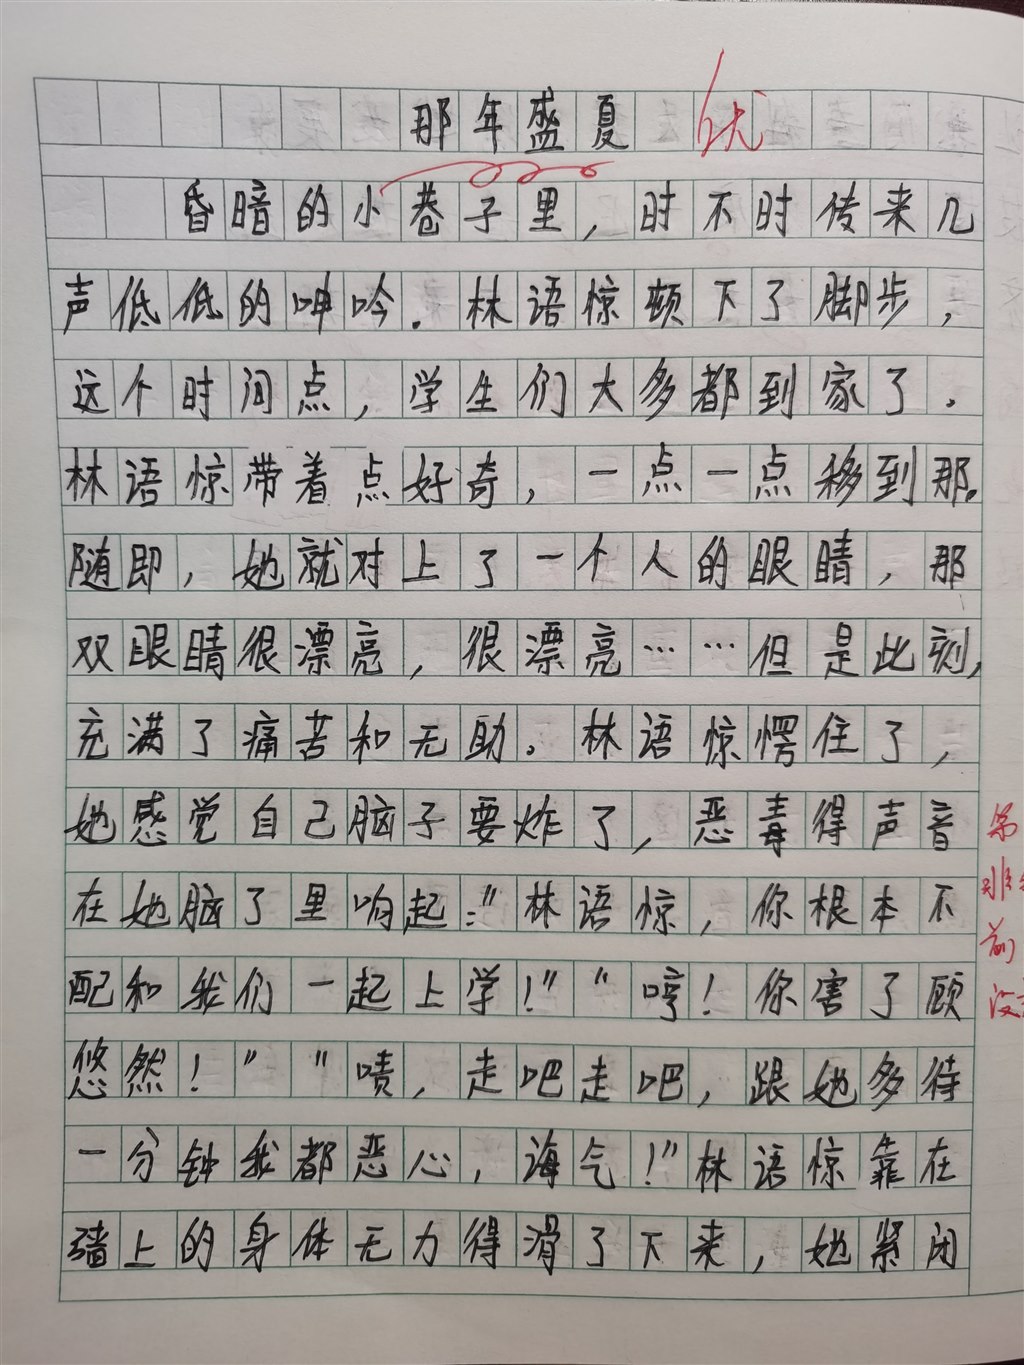 那年盛夏 优
昏暗的小巷子里,时不时传来几
声低低的呻吟.林语惊顿下了脚步,
这个时间点,学生们大多都到家了.
林语惊带着点好奇,一点一点移到那。
随即,她就对上了一个人的眼睛,那
双眼睛很漂亮,很漂亮……但是此刻,
充满了痛苦和无助。林语惊愕住了,
她感觉自己脑子要炸了,恶毒得声音
在她脑了里响起:"林语惊,你根本不
配和我们一起上学!""哼!你害了顾
悠然!""啧,走吧走吧,跟她多待
一分钟我都恶心,诲气!"林语惊靠在
墙上的身体无力得滑了下来,她紧闭
前
没